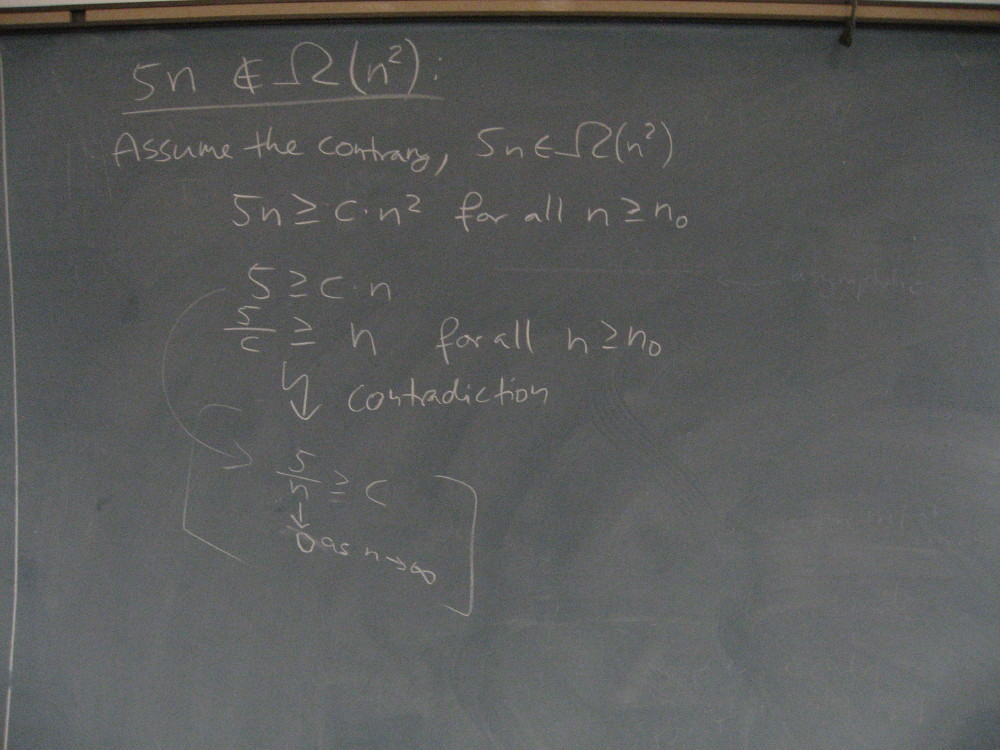 5n ∉ Ω(n²):
Assume the contrary, 5n ∈ Ω(n²)
5n ≥ c·n² for all n ≥ n₀
5 ≥ c·n
5/c ≥ n for all n ≥ n₀
↯ contradiction
5/n ≥ c
↓
0 as n → ∞